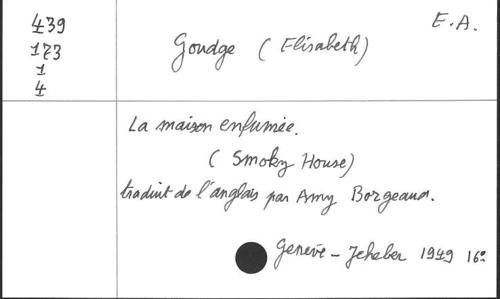 439
173
1
4
E.A.
Goudge (Elisabeth)
La maison enfumée.
(Smoky House)
traduit de l'anglais par Amy Borgeaud.
Genève - Jeheber 1949 16º